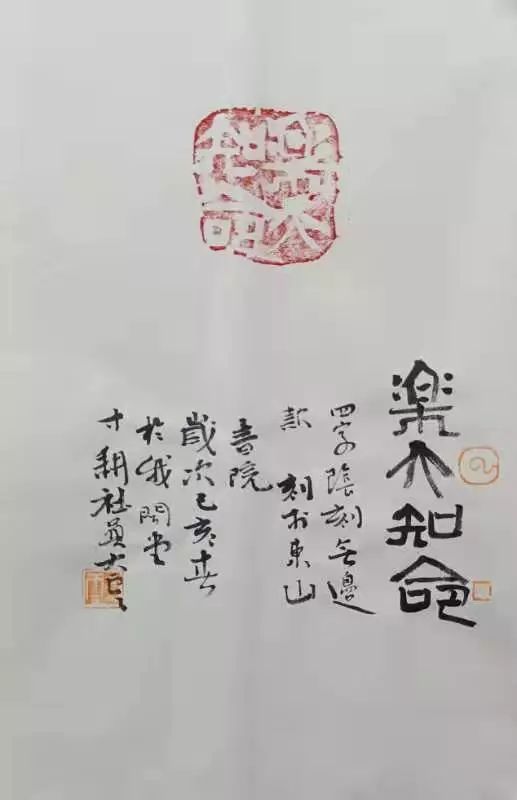 樂天知命
樂天知命
四字陰刻無邊
款 刻於東山
書院
歲次己亥春
於我聞堂
寸耕社員大